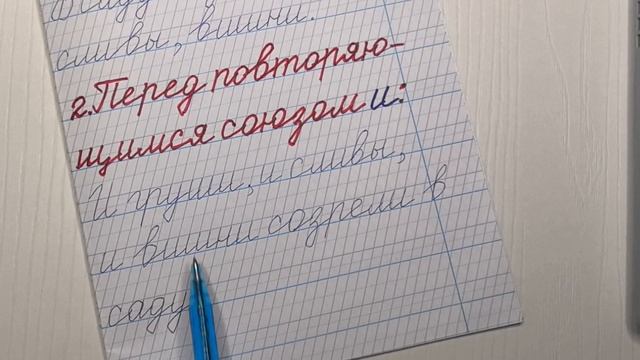 саду
сливы, вишни.
2. Перед повторяю-
щимся союзом и:
И груши, и сливы,
и вишни созрели в
саду